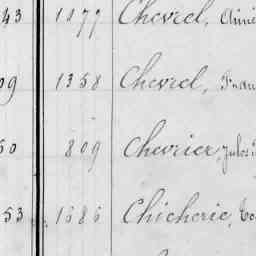 43 1077 Chevrel, Aimé
09 1358 Chevrel, Fran
50 809 Chevrier, Jules
53 1686 Chicherie,